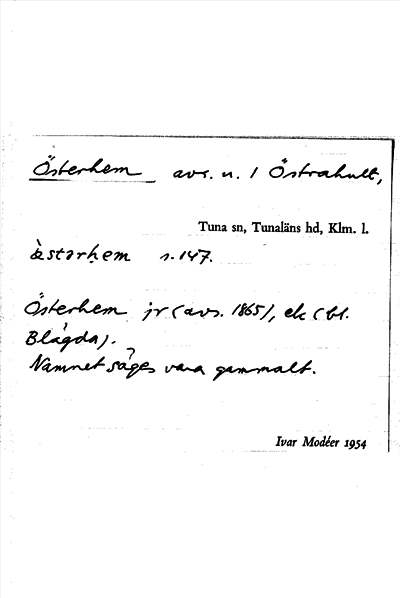 Österhem avs. n. 1 Östrahult,
Tuna sn, Tunaläns hd, Klm. l.
s. 147.
Österhem jr (avs. 1865), ek (bl.
Blågda).
Namnet säges vara gammalt.
Ivar Modéer 1954